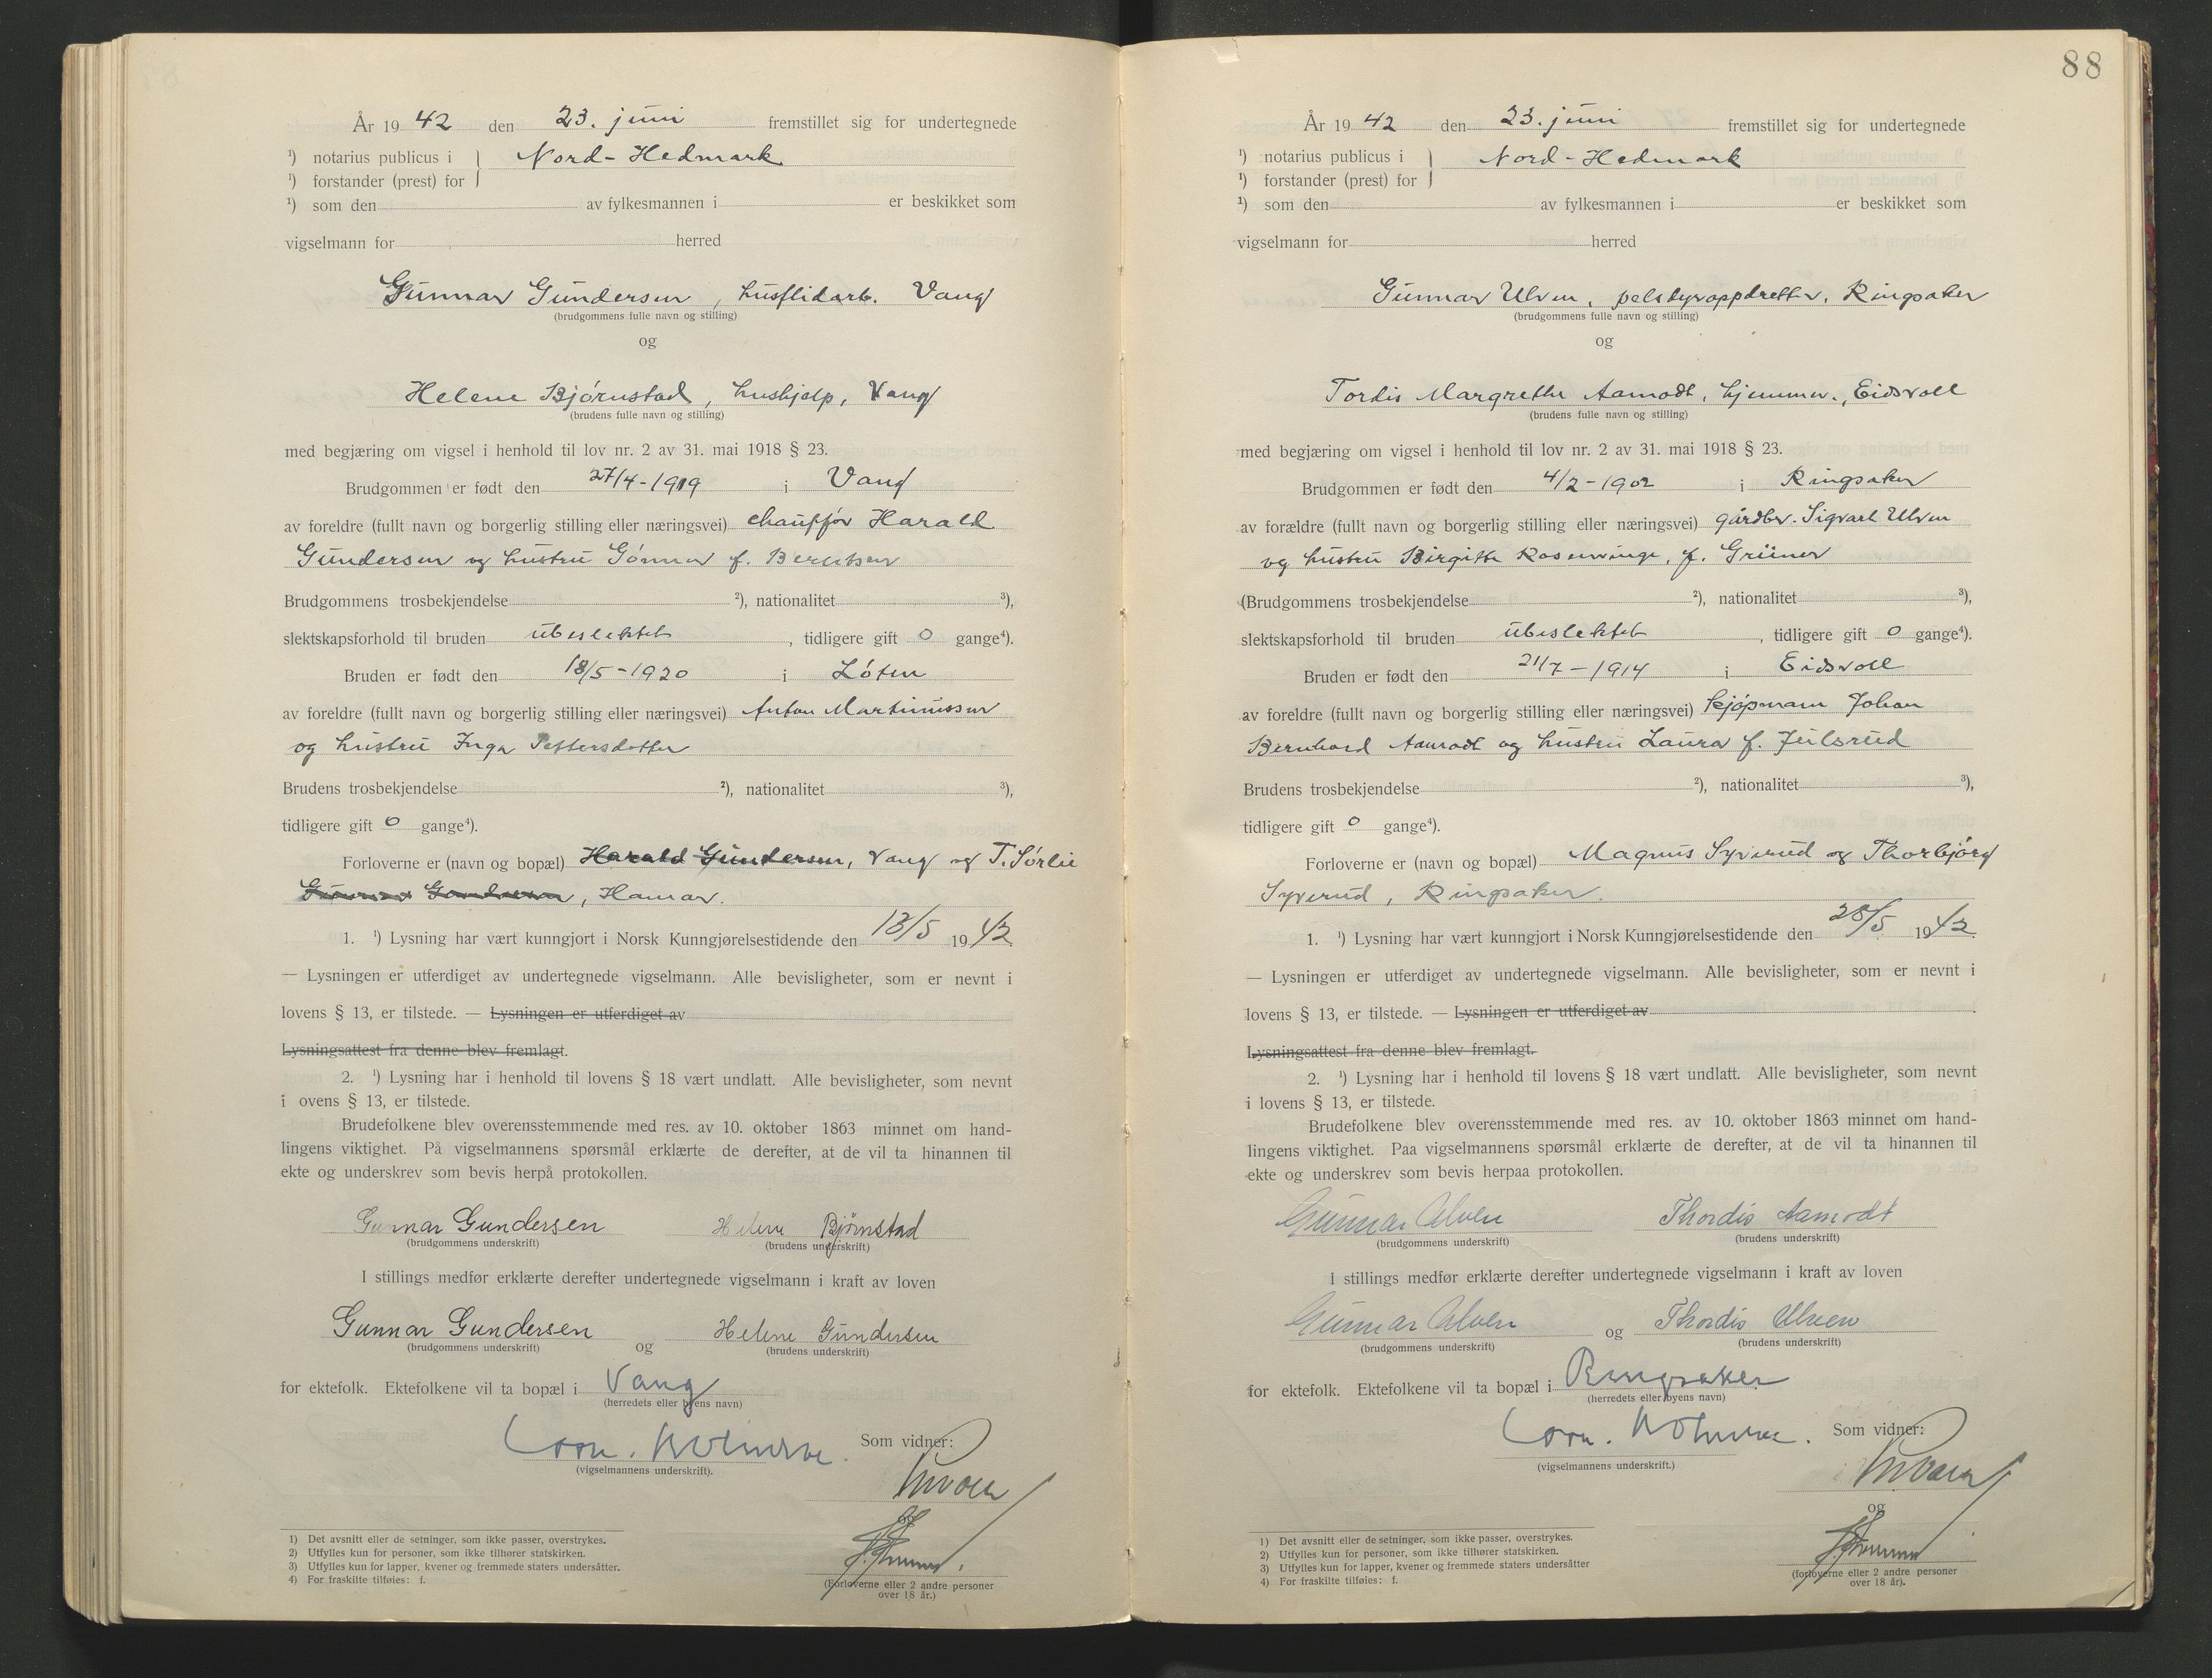 År 19 42 den 23. juni fremstillet sig for undertegnede
¹) notarius publicus i } Nord-Hedmark
¹) forstander (prest) for
¹) som den av fylkesmannen i er beskikket som
vigselmann for herred
Gunnar Gundersen, husflidarb. Vang
(brudgommens fulle navn og stilling)
og
Helene Bjørnstad, hushjelp, Vang
(brudens fulle navn og stilling)
med begjæring om vigsel i henhold til lov nr. 2 av 31. mai 1918 § 23.
Brudgommen er født den 27/4-1919 i Vang
av foreldre (fullt navn og borgerlig stilling eller næringsvei) chauffør Harald
Gundersen og hustru Gønner f. Berntsen
Brudgommens trosbekjendelse ²), nationalitet ³),
slektskapsforhold til bruden ubeslektet, tidligere gift 0 gange⁴).
Bruden er født den 18/5-1920 i Løten
av foreldre (fullt navn og borgerlig stilling eller næringsvei) Anton Martinussen
og hustru Inga Pettersdatter
Brudens trosbekjendelse ²), nationalitet ³),
tidligere gift 0 gange⁴).
Forloverne er (navn og bopæl) Harald Gundersen, Vang og T. Sørlie
Gunnar Gundersen, Hamar.
1. ¹) Lysning har vært kunngjort i Norsk Kunngjørelsestidende den 13/5 1942
— Lysningen er utferdiget av undertegnede vigselmann. Alle bevisligheter, som er nevnt i
lovens § 13, er tilstede. — Lysningen er utferdiget av
Lysningsattest fra denne blev fremlagt.
2. ¹) Lysning har i henhold til lovens § 18 vært undlatt. Alle bevisligheter, som nevnt
i ovens § 13, er tilstede.
Brudefolkene blev overensstemmende med res. av 10. oktober 1863 minnet om hand-
lingens viktighet. På vigselmannens spørsmål erklærte de derefter, at de vil ta hinannen til
ekte og underskrev som bevis herpå protokollen.
Gunnar Gundersen Helene Bjørnstad
(brudgommens underskrift) (brudens underskrift)
I stillings medfør erklærte derefter undertegnede vigselmann i kraft av loven
Gunnar Gundersen og Helene Gundersen
(brudgommens underskrift) (brudens underskrift)
for ektefolk. Ektefolkene vil ta bopæl i Vang
(herredets eller byens navn)
Som vidner:
(vigselmannens underskrift).
og
(Forloverne eller 2 andre personer
over 18 år.)
1) Det avsnitt eller de setninger, som ikke passer, overstrykes.
2) Utfylles kun for personer, som ikke tilhører statskirken.
3) Utfylles kun for lapper, kvener og fremmede staters undersåtter.
4) For fraskilte tilføies: f.
88
År 19 42 den 23. juni fremstillet sig for undertegnede
¹) notarius publicus i } Nord-Hedmark
¹) forstander (prest) for
¹) som den av fylkesmannen i er beskikket som
vigselmann for herred
Gunnar Ulven, pelsdyroppdretter, Ringsaker
(brudgommens fulle navn og stilling)
og
Tordis Margrethe Aamodt, hjemmev., Eidsvoll
(brudens fulle navn og stilling)
med begjæring om vigsel i henhold til lov nr. 2 av 31. mai 1918 § 23.
Brudgommen er født den 4/2-1902 i Ringsaker
av forældre (fullt navn og borgerlig stilling eller næringsvei) gårdbr. Sigvart Ulven
og hustru Birgitte Rosenvinge, f. Grüner
(Brudgommens trosbekjendelse ²), nationalitet ³),
slektskapsforhold til bruden ubeslektet, tidligere gift 0 gange⁴).
Bruden er født den 21/7-1914 i Eidsvoll
av foreldre (fullt navn og borgerlig stilling eller næringsvei) kjøpmann Johan
Bernhard Aamodt og hustru Laura f. Julsrud
Brudens trosbekjendelse ²), nationalitet ³),
tidligere gift 0 gange⁴).
Forloverne er (navn og bopæl) Magnus Syverud og Thorbjørg
Syverud, Ringsaker.
1. ¹) Lysning har vært kunngjort i Norsk Kunngjørelsestidende den 28/5 1942
— Lysningen er utferdiget av undertegnede vigselmann. Alle bevisligheter, som er nevnt i
lovens § 13, er tilstede. — Lysningen er utferdiget av
Lysningsattest fra denne blev fremlagt.
2. ¹) Lysning har i henhold til lovens § 18 vært undlatt. Alle bevisligheter, som nevnt
i lovens § 13, er tilstede.
Brudefolkene blev overensstemmende med res. av 10. oktober 1863 minnet om hand-
lingens viktighet. Paa vigselmannens spørsmål erklærte de derefter, at de vil ta hinannen til
ekte og underskrev som bevis herpaa protokollen.
Gunnar Ulven Thordis Aamodt
(brudgommens underskrift) (brudens underskrift)
I stillings medfør erklærte derefter undertegnede vigselmann i kraft av loven
Gunnar Ulven og Thordis Ulven
(brudgommens underskrift) (brudens underskrift)
for ektefolk. Ektefolkene vil ta bopæl i Ringsaker
(herredets eller byens navn)
Som vidner:
(vigselmannens underskrift.)
og
(forloverne eller 2 andre personer
over 18 år).
1) Det avsnitt eller de setninger, som ikke passer, overstrykes.
2) Utfylles kun for personer, som ikke tilhører statskirken.
3) Utfylles kun for lapper, kvener og fremmede staters undersåtter
4) For fraskilte tilføies: f.